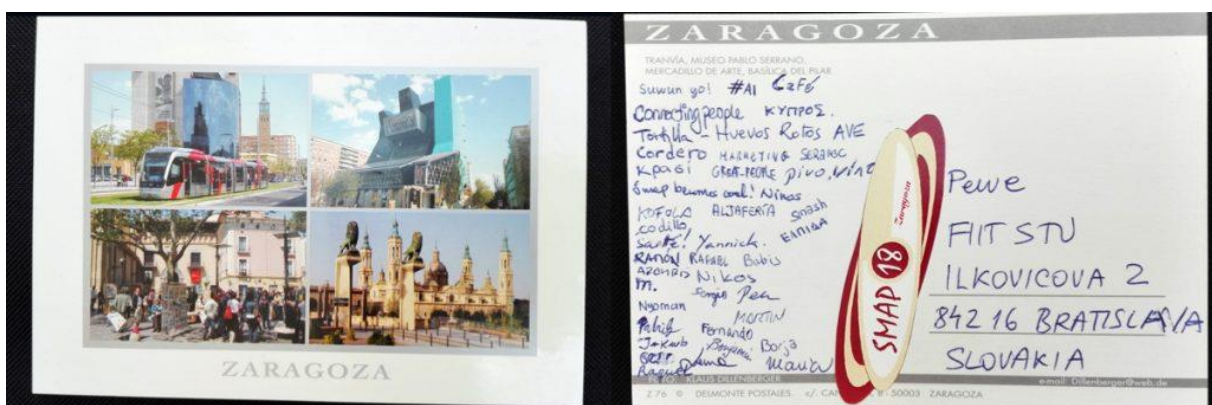 ZARAGOZA
ZARAGOZA
TRANVÍA, MUSEO PABLO SERRANO,
MERCADILLO DE ARTE, BASÍLICA DEL PILAR
Suwun yo! #AI CaFé
Connecting people ΚΥΠΡΟΣ.
Tortilla - Huevos Rotos AVE
Cordero MARKETING
κρασί GREAT-PEOPLE pivo, vino
Smap cool! Ninos
KOFOLA ALJAFERÍA Smash
codillo
Santé! Yannick. ΕΛΠΙΔΑ
RAMÓN RAFAEL Babis
Nikos
M. Sergio
Nyoman MARTIN
Patrik Fernando
Jakub Benjamin Borja
Raquel Maria
SMAP 18
Pewe
FIIT STU
ILKOVICOVA 2
842 16 BRATISLAVA
SLOVAKIA
KLAUS DILLENBERGER
e-mail: Dillenberger@web.de
Z 76 © DELMONTE POSTALES. c/. 50003 ZARAGOZA